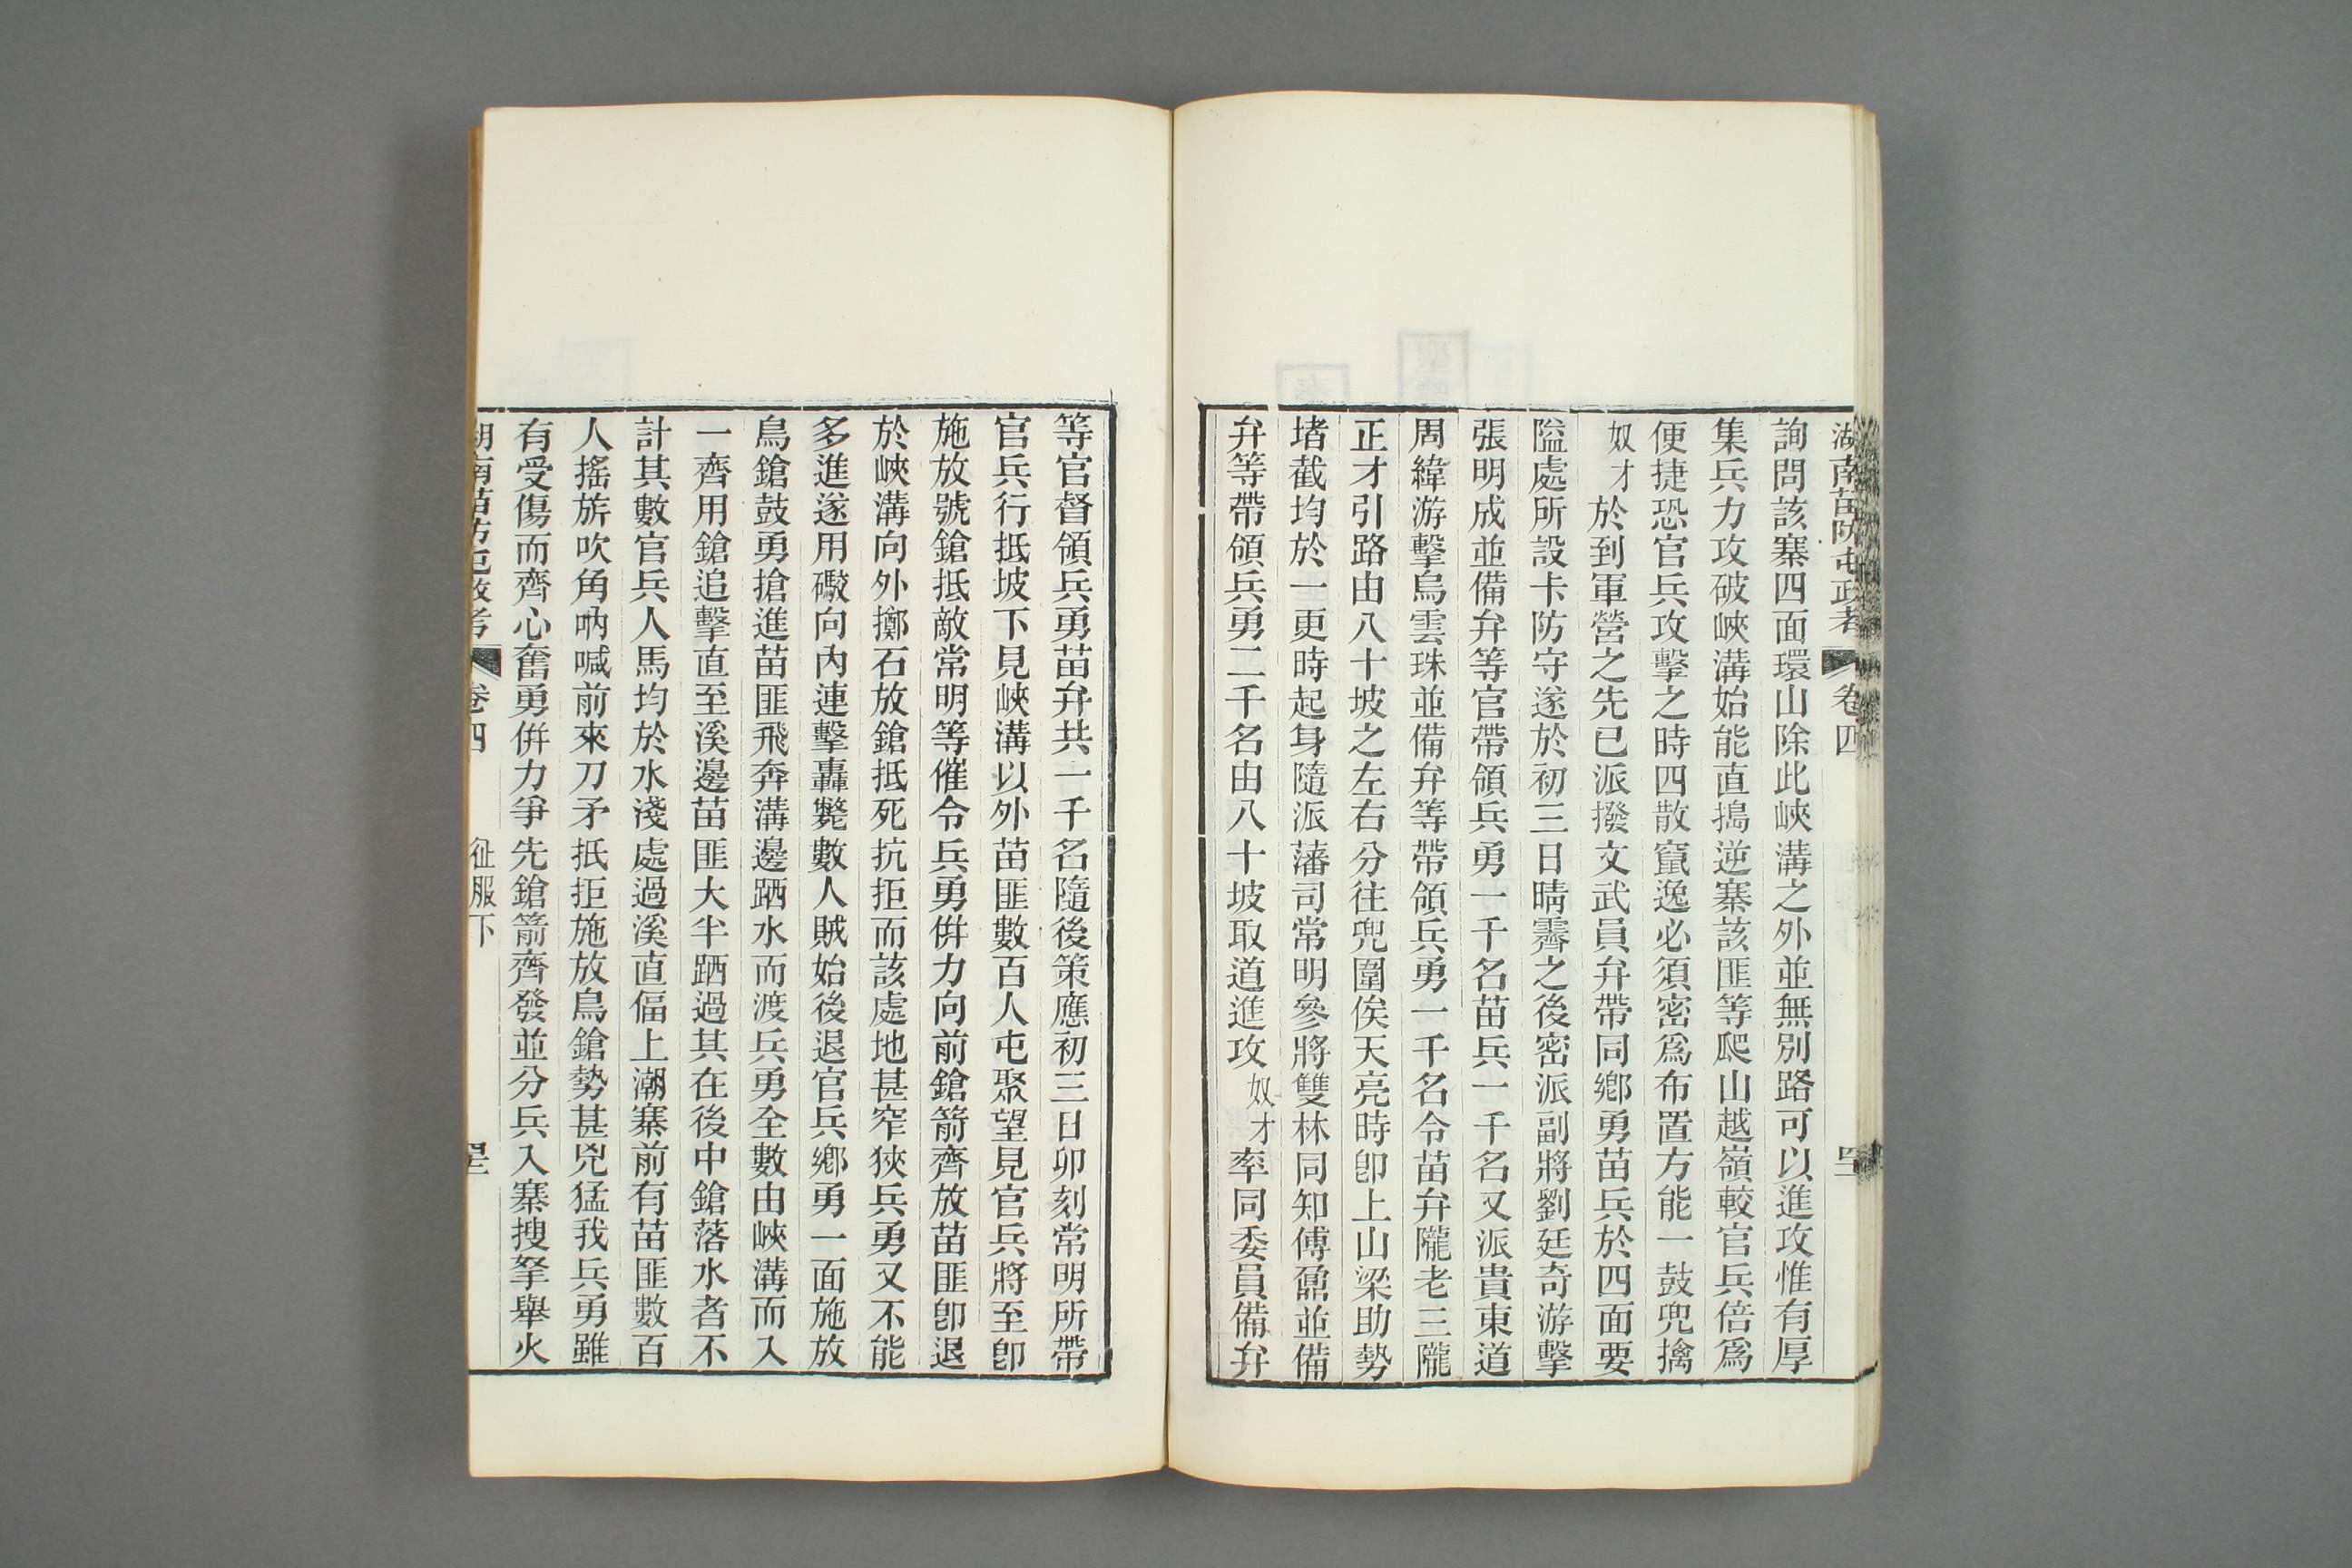 湖南苗防屯政考 卷四
詢問該寨四面環山除此峽溝之外並無別路可以進攻惟有厚
集兵力攻破峽溝始能直搗逆寨該匪等爬山越嶺較官兵倍爲
便捷恐官兵攻擊之時四散竄逸必須密爲布置方能一鼓兜擒
奴才於到軍營之先已派撥文武員弁帶同鄉勇苗兵於四面要
隘處所設卡防守遂於初三日晴霽之後密派副將劉廷奇游擊
張明成並備弁等官帶領兵勇一千名苗兵一千名又派貴東道
周緯游擊烏雲珠並備弁等帶領兵勇一千名令苗弁隴老三隴
正才引路由八十坡之左右分往兜圍俟天亮時卽上山梁助勢
堵截均於一更時起身隨派藩司常明參將雙林同知傅鼐並備
弁等帶領兵勇二千名由八十坡取道進攻奴才率同委員備弁
等官督領兵勇苗弁共一千名隨後策應初三日卯刻常明所帶
官兵行抵坡下見峽溝以外苗匪數百人屯聚望見官兵將至卽
施放號鎗抵敵常明等催令兵勇併力向前鎗箭齊放苗匪卽退
於峽溝向外擲石放鎗抵死抗拒而該處地甚窄狹兵勇又不能
多進遂用礮向內連擊轟斃數人賊始後退官兵鄉勇一面施放
鳥鎗鼓勇搶進苗匪飛奔溝邊跴水而渡兵勇全數由峽溝而入
一齊用鎗追擊直至溪邊苗匪大半跴過其在後中鎗落水者不
計其數官兵人馬均於水淺處過溪直偪上潮寨前有苗匪數百
人搖旂吹角吶喊前來刀矛抵拒施放鳥鎗勢甚兇猛我兵勇雖
有受傷而齊心奮勇併力爭先鎗箭齊發並分兵入寨搜拏舉火
湖南苗防屯政考 卷四 征服下